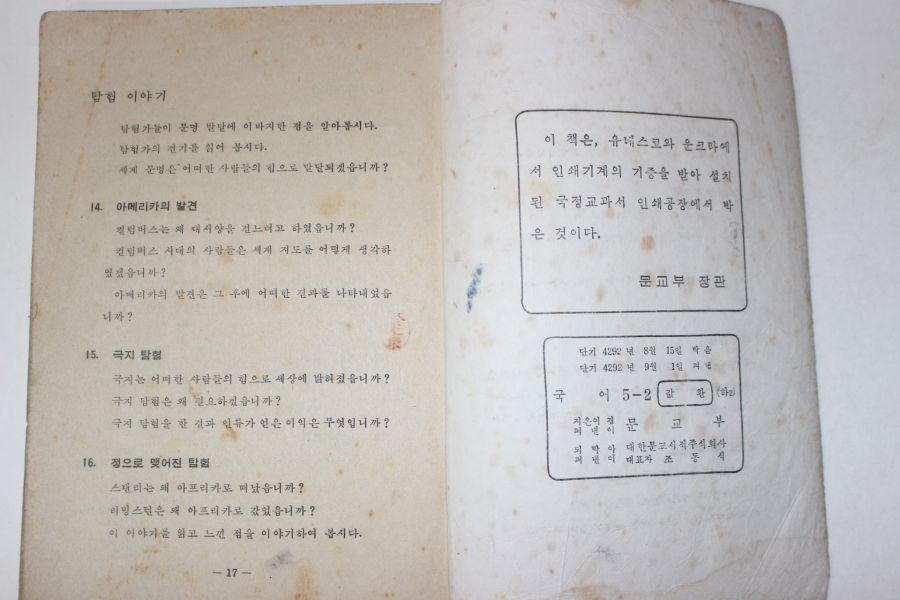 탐험 이야기
탐험가들이 문명 발달에 이바지한 점을 알아봅시다.
탐험가의 전기를 읽어 봅시다.
세계 문명은 어떠한 사람들의 힘으로 발달되겠읍니까?
14. 아메리카의 발견
컬럼버스는 왜 대서양을 건느려고 하였읍니까?
컬럼버스 시대의 사람들은 세계 지도를 어떻게 생각하
였겠읍니까?
아메리카의 발견은 그 후에 어떠한 결과를 나타내었읍
니까?
15. 극지 탐험
극지는 어떠한 사람들의 힘으로 세상에 밝혀졌읍니까?
극지 탐험은 왜 필요하겠읍니까?
극지 탐험을 한 결과 인류가 얻은 이익은 무엇입니까?
16. 정으로 맺어진 탐험
스탠리는 왜 아프리카로 떠났읍니까?
리빙스턴은 왜 아프리카로 갔었읍니까?
이 이야기를 읽고 느낀 점을 이야기하여 봅시다.
— 17 —
이 책은, 유네스코와 운크라에
서 인쇄기계의 기증을 받아 설치
된 국정교과서 인쇄공장에서 박
은 것이다.
문교부 장관
단기 4292 년 8월 15일 박음
단기 4292 년 9월 1일 펴냄
국 어 5-2 값 환 (하2)
지은이 겸 펴낸이 문 교 부
되박아 펴낸이 대한문교서적주식회사
대표자 조 동 식